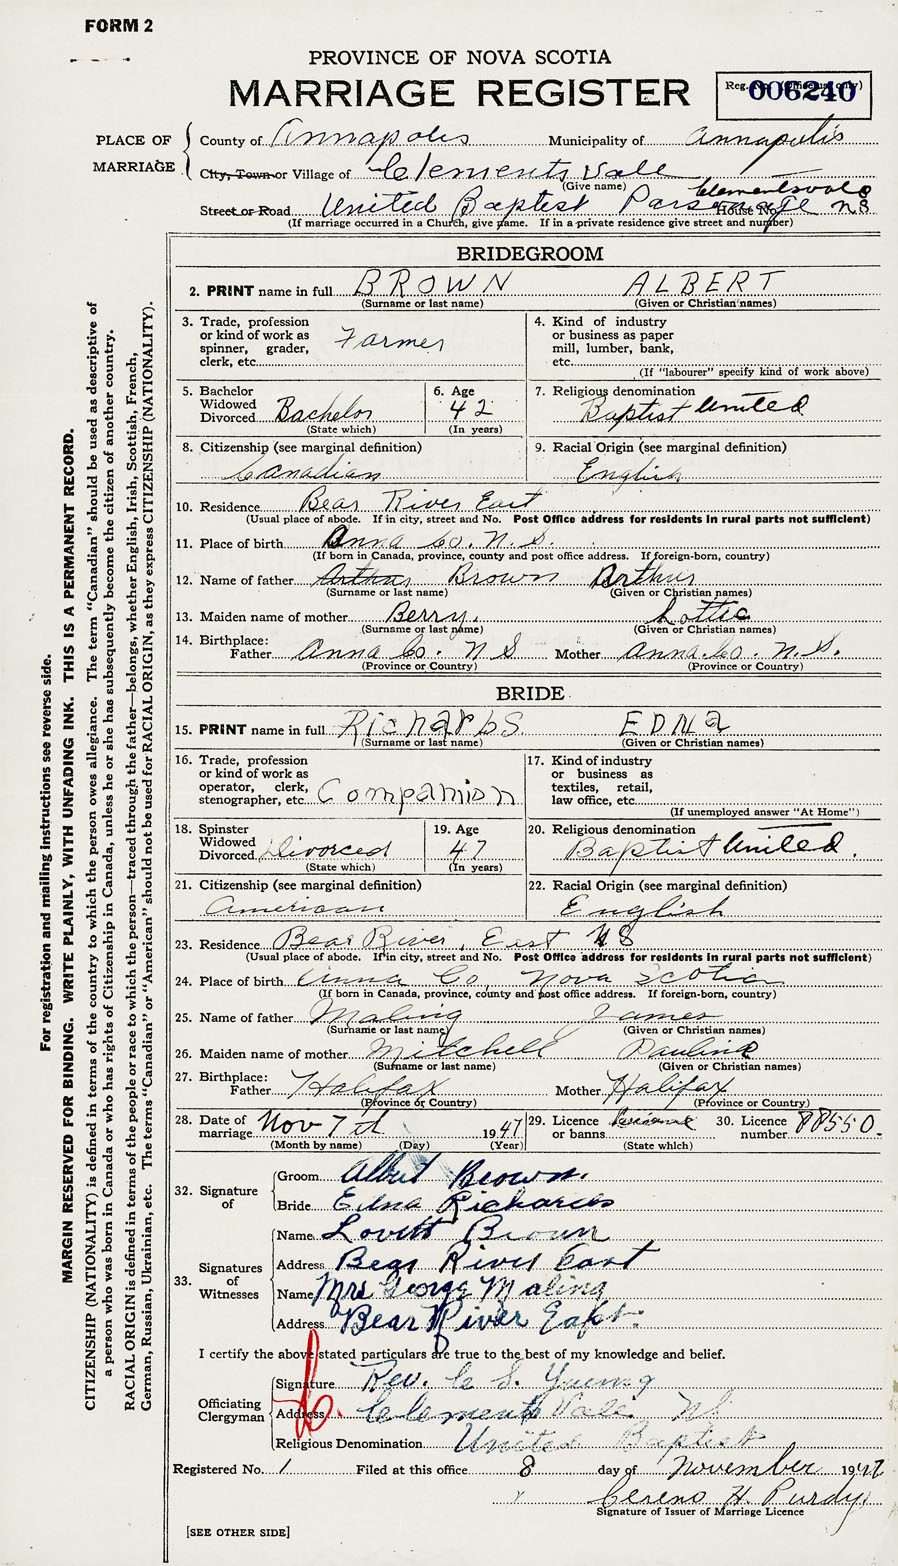 FORM 2
PROVINCE OF NOVA SCOTIA
MARRIAGE REGISTER
Reg. No. (Office use only) 006240
PLACE OF MARRIAGE
County of Annapolis Municipality of Annapolis
City, Town or Village of Clements Vale
(Give name)
Clementsvale
Street or Road United Baptist Parsonage House No. NS
(If marriage occurred in a Church, give name. If in a private residence give street and number)
BRIDEGROOM
2. PRINT name in full BROWN ALBERT
(Surname or last name) (Given or Christian names)
3. Trade, profession or kind of work as spinner, grader, clerk, etc. Farmer
4. Kind of industry or business as paper mill, lumber, bank, etc.
(If "labourer" specify kind of work above)
5. Bachelor Widowed Divorced Bachelor
(State which)
6. Age 42
(In years)
7. Religious denomination
Baptist United
8. Citizenship (see marginal definition)
Canadian
9. Racial Origin (see marginal definition)
English
10. Residence Bear River East
(Usual place of abode. If in city, street and No. Post Office address for residents in rural parts not sufficient)
11. Place of birth Anna Co. N.S.
(If born in Canada, province, county and post office address. If foreign-born, country)
12. Name of father Arthur Brown Arthur
(Surname or last name) (Given or Christian names)
13. Maiden name of mother Berry, Lottie
(Surname or last name) (Given or Christian names)
14. Birthplace:
Father Anna Co. N S Mother Anna. Co. N.S.
(Province or Country) (Province or Country)
BRIDE
15. PRINT name in full RicharDS EDNa
(Surname or last name) (Given or Christian names)
16. Trade, profession or kind of work as operator, clerk, stenographer, etc. Companion
17. Kind of industry or business as textiles, retail, law office, etc.
(If unemployed answer "At Home")
18. Spinster Widowed Divorced Divorced
(State which)
19. Age 47
(In years)
20. Religious denomination
Baptist United.
21. Citizenship (see marginal definition)
American
22. Racial Origin (see marginal definition)
English
23. Residence Bear River, East NS
(Usual place of abode. If in city, street and No. Post Office address for residents in rural parts not sufficient)
24. Place of birth Anna Co, Nova Scotia
(If born in Canada, province, county and post office address. If foreign-born, country)
25. Name of father Maling James
(Surname or last name) (Given or Christian names)
26. Maiden name of mother Mitchell Pauline
(Surname or last name) (Given or Christian names)
27. Birthplace:
Father Halifax Mother Halifax
(Province or Country) (Province or Country)
28. Date of marriage Nov 7th 1947
(Month by name) (Day) (Year)
29. Licence or banns License
(State which)
30. Licence number 88550.
32. Signature of
Groom Albert Brown.
Bride Edna Richards
33. Signatures of Witnesses
Name Lovitt Brown
Address Bear River East
Name Mrs George Maling
Address Bear River East.
I certify the above stated particulars are true to the best of my knowledge and belief.
Officiating Clergyman
Signature Rev. C S. Young
Address Clements Vale, NS
Religious Denomination United Baptist
Registered No. 1 Filed at this office 8 day of November 1947
Cereno H. Purdy
Signature of Issuer of Marriage Licence
[SEE OTHER SIDE]
For registration and mailing instructions see reverse side.
MARGIN RESERVED FOR BINDING. WRITE PLAINLY, WITH UNFADING INK. THIS IS A PERMANENT RECORD.
CITIZENSHIP (NATIONALITY) is defined in terms of the country to which the person owes allegiance. The term "Canadian" should be used as descriptive of
a person who was born in Canada or who has rights of Citizenship in Canada, unless he or she has subsequently become the citizen of another country.
RACIAL ORIGIN is defined in terms of the people or race to which the person—traced through the father—belongs, whether English, Irish, Scottish, French,
German, Russian, Ukrainian, etc. The terms "Canadian" or "American" should not be used for RACIAL ORIGIN, as they express CITIZENSHIP (NATIONALITY).